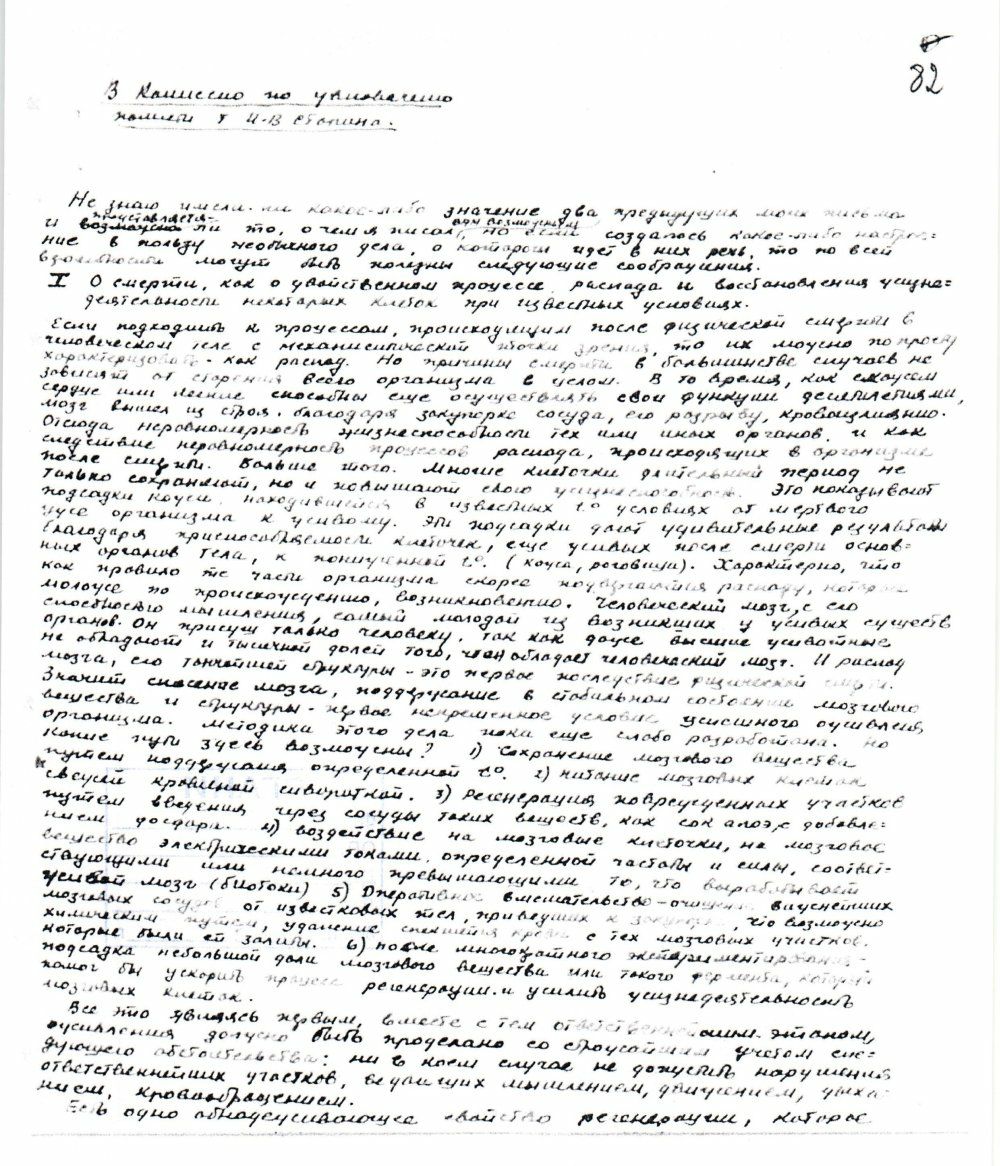 82
В Комиссию по увековечению
памяти т И-В Сталина.
Не знаю имели-ли какое-либо значение два предыдущих моих письма
представляется- или возможным
и возможно ли то, о чем я писал, но если создалось какое-либо настрое=
ние в пользу необычного дела, о котором идет в них речь, то по всей
вероятности могут быть полезны следующие соображения.
I О смерти, как о двойственном процессе распада и восстановления жизне=
деятельности некоторых клеток при известных условиях.
Если подходить к процессам, происходящим после физической смерти в
человеческом теле с механистической точки зрения, то их можно попросту
характеризовать - как распад. Но причины смерти в большинстве случаев не
зависят от старения всего организма в целом. В то время, как скажем
сердце или легкие способны еще осуществлять свои функции десятилетиями,
мозг вышел из строя, благодаря закупорке сосуда, его разрыву, кровоизлиянию.
Отсюда неравномерность жизнеспособности тех или иных органов, и как
следствие неравномерность процессов распада, происходящих в организме
после смерти. Больше того. Многие клеточки длительный период не
только сохраняют, но и повышают свою жизнеспособность. Это показывают
подсадки кожи, находившейся в известных t° условиях от мертвого
уже организма к живому. Эти подсадки дают удивительные результаты
благодаря приспособляемости клеточек, еще живых после смерти основ=
ных органов тела, к пониженной t°. (кожа, роговица). Характерно, что
как правило те части организма скорее подвергаются распаду, которые
моложе по происхождению, возникновению. Человеческий мозг, с его
способностью мышления, самый молодой из возникших у живых существ
органов. Он присущ только человеку, так как даже высшие животные
не обладают и тысячной долей того, чем обладает человеческий мозг. И распад
мозга, его тончайшей структуры - это первое последствие физической смерти.
Значит спасение мозга, поддержание в стабильном состоянии мозгового
вещества и структуры - первое непременное условие успешного оживления
организма. Методика этого дела пока еще слабо разработана. Но
какие пути здесь возможны? 1) Сохранение мозгового вещества
путем поддержания определенной t°. 2) питание мозговых клеток
свежей кровяной сывороткой. 3) Регенерация поврежденных участков
путем введения через сосуды таких веществ, как сок алоэ, с добавле=
нием фосфора. 4) воздействие на мозговые клеточки, на мозговое
вещество электрическими токами, определенной частоты и силы, соответ-
ствующими или немного превышающими то, что вырабатывает
живой мозг (биотоки) 5) Оперативное вмешательство - очищение
мозговых сосудов от известковых тел, приведших к закупорке, что возможно
химическим путем, удаление крови с тех мозговых участков,
которые были ей залиты. 6) после многократного экспериментирования -
подсадка небольшой доли мозгового вещества или такого фермента, который
помог бы ускорить процесс регенерации и усилить жизнедеятельность
мозговых клеток.
Все это являясь первым, вместе с тем ответственнейшим этапом,
оживления должно быть проделано со строжайшим учетом сле=
дующего обстоятельства: ни в коем случае не допустить нарушения
ответственнейших участков, ведающих мышлением, движением, дыха-
нием, кровообращением.
Есть одно обнадеживающее свойство регенерации, которое